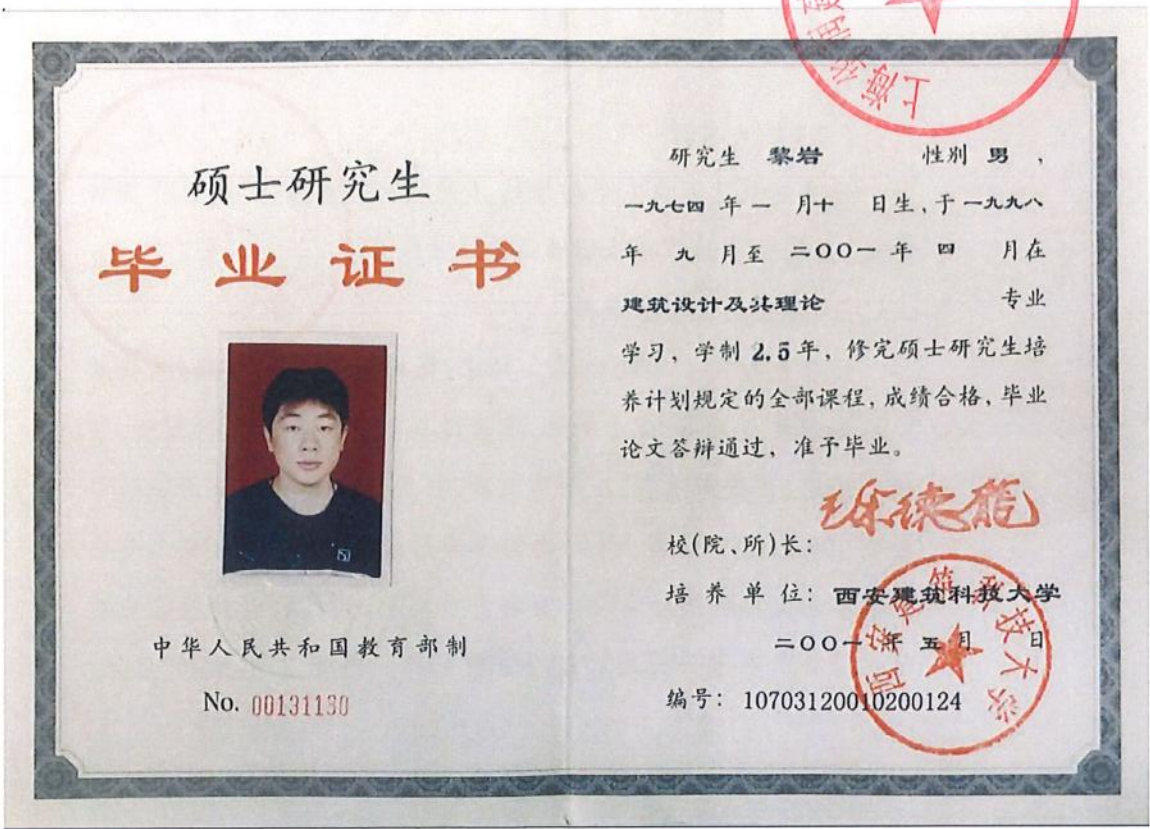 硕士研究生
毕业证书
中华人民共和国教育部制
No. 00131130
上海
研究生 黎岩 性别 男 ,
一九七四 年 一 月十 日生,于 一九九八
年 九 月至 二〇〇一 年 四 月在
建筑设计及其理论 专业
学习, 学制 2.5 年, 修完硕士研究生培
养计划规定的全部课程, 成绩合格、毕业
论文答辩通过, 准予毕业。
校(院、所)长:
培养单位: 西安建筑科技大学
二〇〇一 年 五 月 日
编号: 10703120010200124
西安建筑科技大学